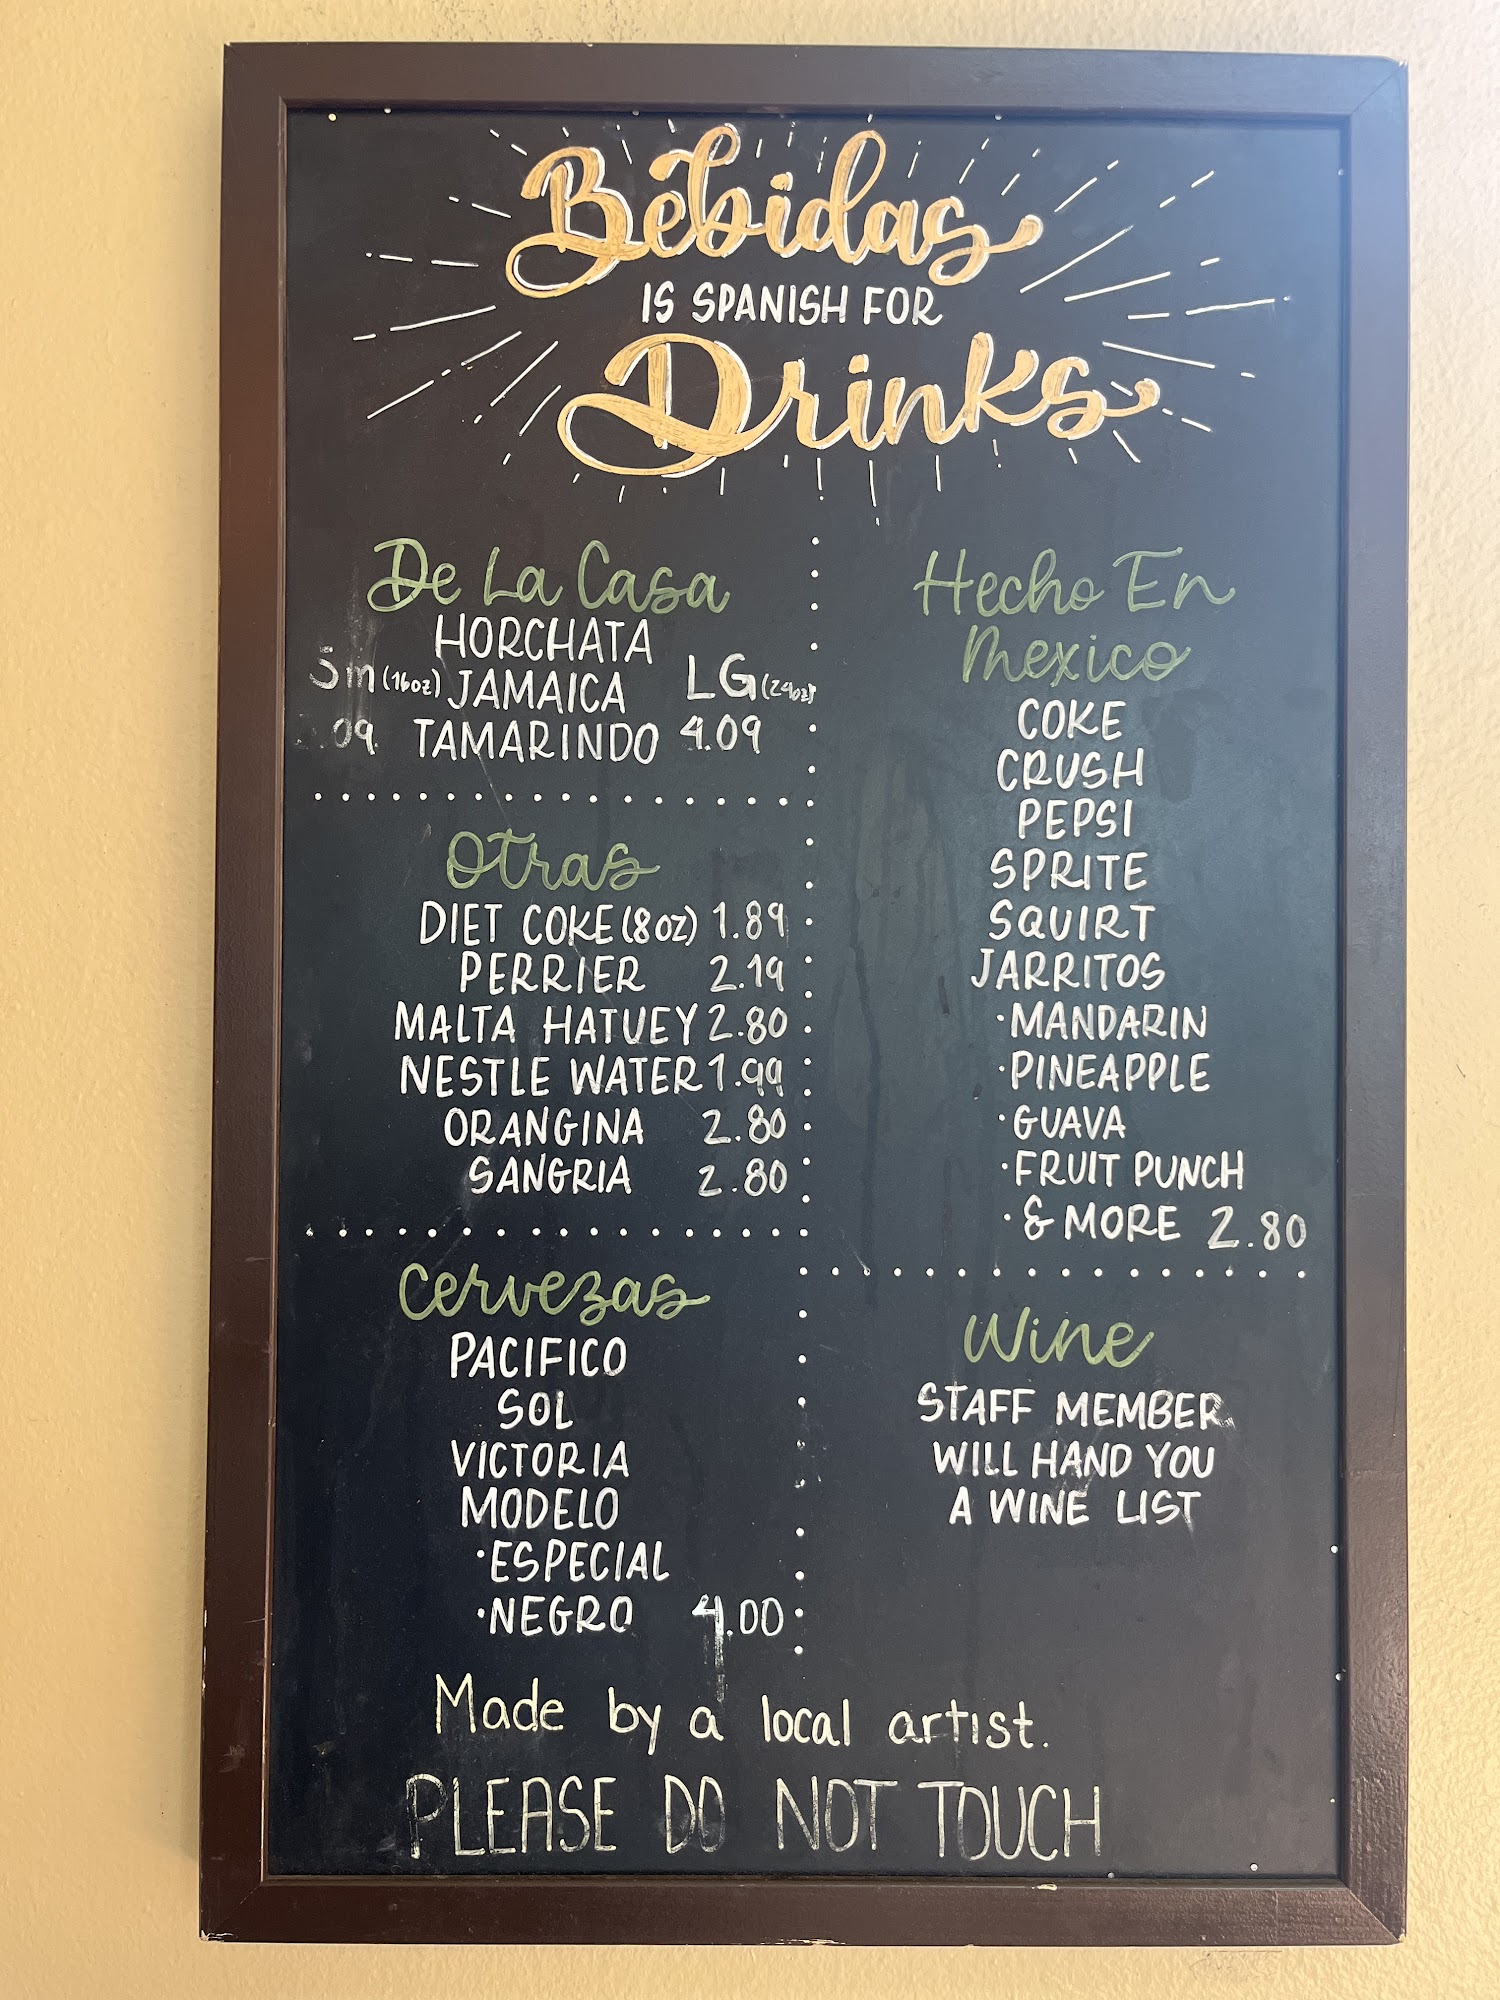 Bebidas
IS SPANISH FOR
Drinks
De La Casa
HORCHATA
Sm (16oz) JAMAICA LG (24oz)
.09 TAMARINDO 4.09
Otras
DIET COKE (8 oz) 1.89
PERRIER 2.19
MALTA HATUEY 2.80
NESTLE WATER 1.99
ORANGINA 2.80
SANGRIA 2.80
Cervezas
PACIFICO
SOL
VICTORIA
MODELO
·ESPECIAL
·NEGRO 4.00
Hecho En
Mexico
COKE
CRUSH
PEPSI
SPRITE
SQUIRT
JARRITOS
·MANDARIN
·PINEAPPLE
·GUAVA
·FRUIT PUNCH
·& MORE 2.80
Wine
STAFF MEMBER
WILL HAND YOU
A WINE LIST
Made by a local artist.
PLEASE DO NOT TOUCH